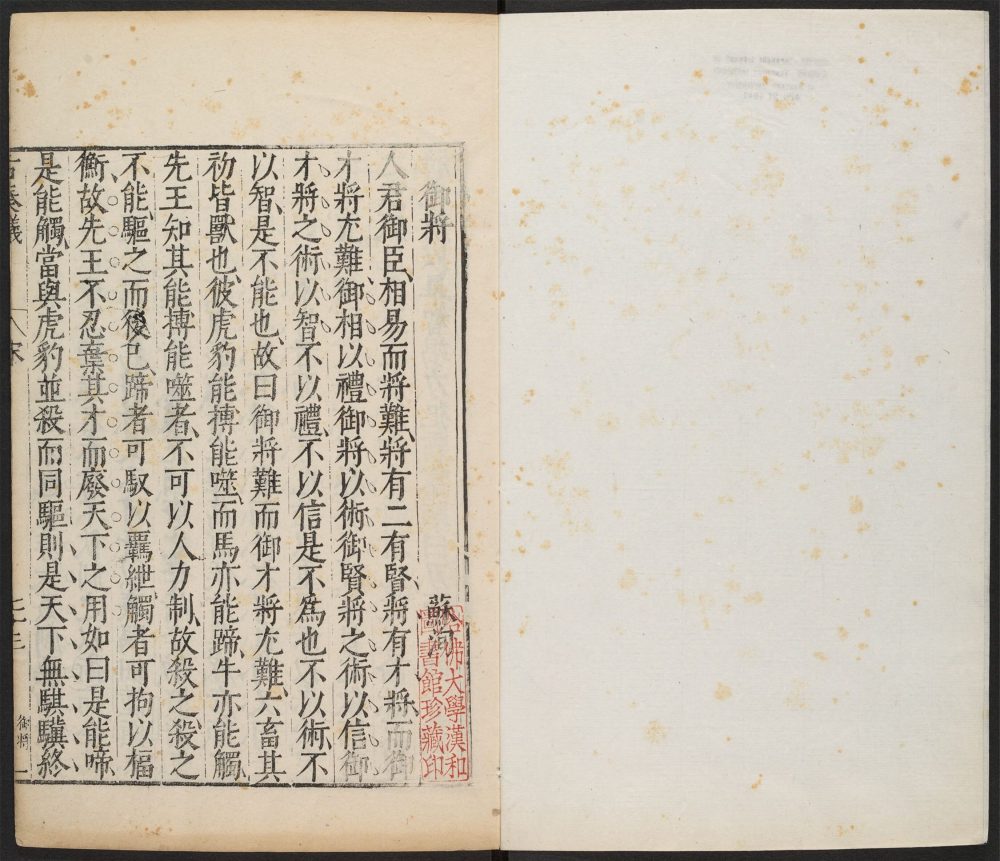 御將
蘇洵
哈佛大學漢和
圖書館珍藏印
人君御臣相易而將難將有二有賢將有才將而御
才將尤難御相以禮御將以術御賢將之術以信御
才將之術以智不以禮不以信是不為也不以術不
以智是不能也故曰御將難而御才將尤難六畜其
初皆獸也彼虎豹能搏能噬而馬亦能蹄牛亦能觸
先王知其能搏能噬者不可以人力制故殺之殺之
不能驅之而後已蹄者可馭以羈紲觸者可拘以楅
衡故先王不忍棄其才而廢天下之用如曰是能啼
是能觸當與虎豹並殺而同驅則是天下無騏驥終
古奏議
宋
御將 一